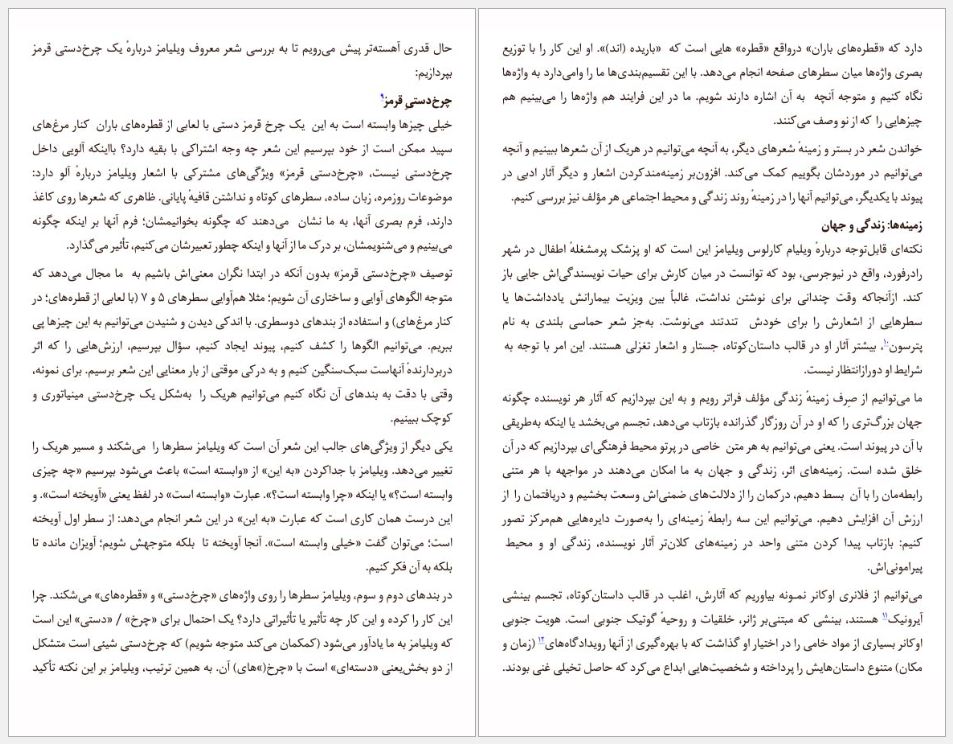 حال قدری آهسته‌تر پیش می‌رویم تا به بررسی شعر معروف ویلیامز دربارهٔ یک چرخ‌دستی قرمز
بپردازیم:
چرخ‌دستیِ قرمز۹
خیلی چیزها وابسته است به این یک چرخ قرمز دستی با لعابی از قطره‌های باران کنار مرغ‌های
سپید ممکن است از خود بپرسیم این شعر چه وجه اشتراکی با بقیه دارد؟ بااینکه آلویی داخل
چرخ‌دستی نیست، «چرخ‌دستی قرمز» ویژگی‌های مشترکی با اشعار ویلیامز دربارهٔ آلو دارد:
موضوعات روزمره، زبان ساده، سطرهای کوتاه و نداشتن قافیهٔ پایانی. ظاهری که شعرها روی کاغذ
دارند، فرم بصری آنها، به ما نشان می‌دهند که چگونه بخوانیمشان؛ فرم آنها بر اینکه چگونه
می‌بینیم و می‌شنویمشان، بر درک ما از آنها و اینکه چطور تعبیرشان می‌کنیم، تأثیر می‌گذارد.
توصیف «چرخ‌دستی قرمز» بدون آنکه در ابتدا نگران معنی‌اش باشیم به ما مجال می‌دهد که
متوجه الگوهای آوایی و ساختاری آن شویم؛ مثلا هم‌آوایی سطرهای ۵ و ۷ (با لعابی از قطره‌های؛ در
کنار مرغ‌های) و استفاده از بندهای دوسطری. با اندکی دیدن و شنیدن می‌توانیم به این چیزها پی
ببریم. می‌توانیم الگوها را کشف کنیم، پیوند ایجاد کنیم، سؤال بپرسیم، ارزش‌هایی را که اثر
دربردارندهٔ آنهاست سبک‌سنگین کنیم و به درکی موقتی از بار معنایی این شعر برسیم. برای نمونه،
وقتی با دقت به بندهای آن نگاه کنیم می‌توانیم هریک را به‌شکل یک چرخ‌دستی مینیاتوری و
کوچک ببینیم.
یکی دیگر از ویژگی‌های جالب این شعر آن است که ویلیامز سطرها را می‌شکند و مسیر هریک را
تغییر می‌دهد. ویلیامز با جداکردن «به این» از «وابسته است» باعث می‌شود بپرسیم «چه چیزی
وابسته است؟» یا اینکه «چرا وابسته است؟». عبارت «وابسته است» در لفظ یعنی «آویخته است». و
این درست همان کاری است که عبارت «به این» در این شعر انجام می‌دهد: از سطر اول آویخته
است؛ می‌توان گفت «خیلی وابسته است». آنجا آویخته تا بلکه متوجهش شویم؛ آویزان مانده تا
بلکه به آن فکر کنیم.
در بندهای دوم و سوم، ویلیامز سطرها را روی واژه‌های «چرخ‌دستی» و «قطره‌های» می‌شکند. چرا
این کار را کرده و این کار چه تأثیر یا تأثیراتی دارد؟ یک احتمال برای «چرخ» / «دستی» این است
که ویلیامز به ما یادآور می‌شود (کمکمان می‌کند متوجه شویم) که چرخ‌دستی شیئی است متشکل
از دو بخش‌یعنی «دسته‌ای» است با «چرخ(»های) آن. به همین ترتیب، ویلیامز بر این نکته تأکید
دارد که «قطره‌های باران» درواقع «قطره» هایی است که «باریده (اند)». او این کار را با توزیع
بصری واژه‌ها میان سطرهای صفحه انجام می‌دهد. با این تقسیم‌بندی‌ها ما را وامی‌دارد به واژه‌ها
نگاه کنیم و متوجه آنچه به آن اشاره دارند شویم. ما در این فرایند هم واژه‌ها را می‌بینیم هم
چیزهایی را که از نو وصف می‌کنند.
خواندن شعر در بستر و زمینهٔ شعرهای دیگر، به آنچه می‌توانیم در هریک از آن شعرها ببینیم و آنچه
می‌توانیم در موردشان بگوییم کمک می‌کند. افزون‌بر زمینه‌مندکردن اشعار و دیگر آثار ادبی در
پیوند با یکدیگر، می‌توانیم آنها را در زمینهٔ روند زندگی و محیط اجتماعی هر مؤلف نیز بررسی کنیم.
زمینه‌ها: زندگی و جهان
نکته‌ای قابل‌توجه دربارهٔ ویلیام کارلوس ویلیامز این است که او پزشک پرمشغلهٔ اطفال در شهر
رادرفورد، واقع در نیوجرسی، بود که توانست در میان کارش برای حیات نویسندگی‌اش جایی باز
کند. ازآنجاکه وقت چندانی برای نوشتن نداشت، غالباً بین ویزیت بیمارانش یادداشت‌ها یا
سطرهایی از اشعارش را برای خودش تندتند می‌نوشت. به‌جز شعر حماسی بلندی به نام
پترسون۱۰، بیشتر آثار او در قالب داستان‌کوتاه، جستار و اشعار تغزلی هستند. این امر با توجه به
شرایط او دورازانتظار نیست.
ما می‌توانیم از صِرف زمینهٔ زندگی مؤلف فراتر رویم و به این بپردازیم که آثار هر نویسنده چگونه
جهان بزرگ‌تری را که او در آن روزگار گذرانده بازتاب می‌دهد، تجسم می‌بخشد یا اینکه به‌طریقی
با آن در پیوند است. یعنی می‌توانیم به هر متن خاصی در پرتو محیط فرهنگی‌ای بپردازیم که در آن
خلق شده است. زمینه‌های اثر، زندگی و جهان به ما امکان می‌دهند در مواجهه با هر متنی
رابطه‌مان را با آن بسط دهیم، درکمان را از دلالت‌های ضمنی‌اش وسعت بخشیم و دریافتمان را از
ارزش آن افزایش دهیم. می‌توانیم این سه رابطهٔ زمینه‌ای را به‌صورت دایره‌هایی هم‌مرکز تصور
کنیم: بازتاب پیدا کردن متنی واحد در زمینه‌های کلان‌تر آثار نویسنده، زندگی او و محیط
پیرامونی‌اش.
می‌توانیم از فلانری اوکانر نمـونه بیاوریم که آثارش، اغلب در قالب داستان‌کوتاه، تجسم بینشی
آیرونیک۱۱ هستند، بینشی که مبتنی‌بر ژانر، خلقیات و روحیهٔ گوتیک جنوبی است. هویت جنوبی
اوکانر بسیاری از مواد خامی را در اختیار او گذاشت که با بهره‌گیری از آنها رویدادگاه‌های۱۲ (زمان و
مکان) متنوع داستان‌هایش را پرداخته و شخصیت‌هایی ابداع می‌کرد که حاصل تخیلی غنی بودند.